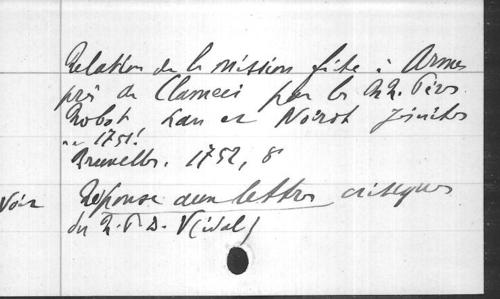 Relation de la mission faite à Armes
près de Clameci par les RR. Pères
Robat Lan et Noirot Jésuites
en 1751.
Bruxelles. 1752, 8°
Voir Réponse aux lettres critiques
du R. P. D. V(idal)